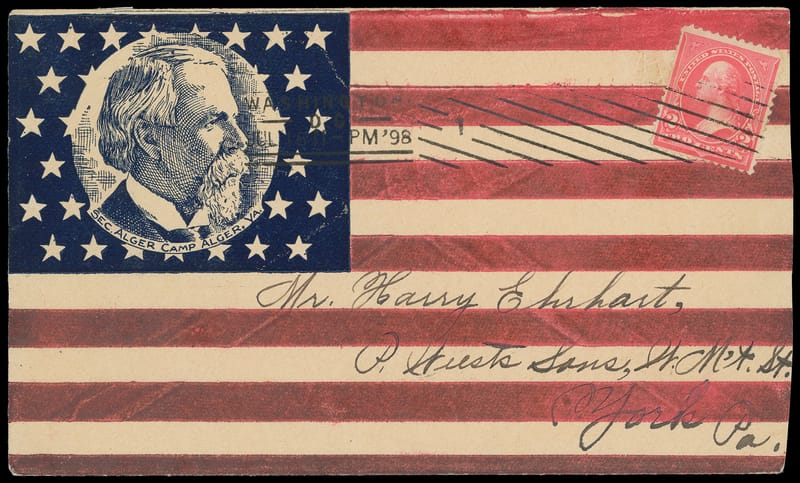 WASHINGTON
D.C.
PM '98
UNITED STATES POSTAGE
2 2
TWO CENTS
SEC. ALGER CAMP ALGER, VA.
Mr. Harry Ehrhart,
P. Wiests Sons, W. M'k't. St.
York
Pa.